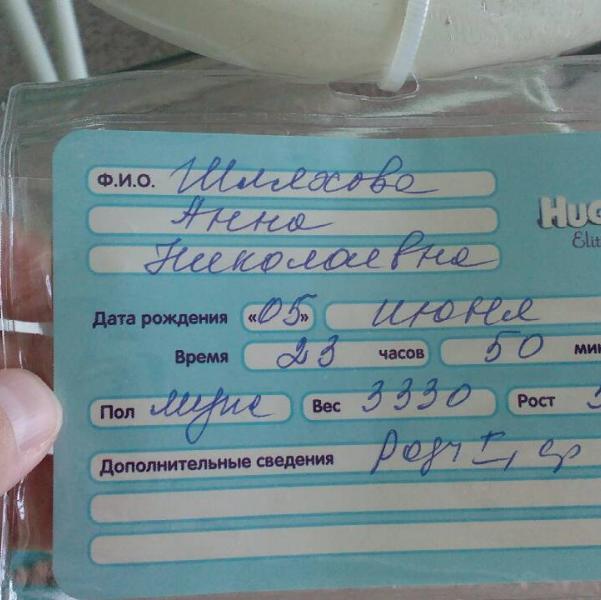 Ф.И.О. Шляхова
Анна
Николаевна
HUG
Elit
Дата рождения «05» июня
Время 23 часов 50 мин
Пол муж Вес 3330 Рост 5
Дополнительные сведения Роды I, ср